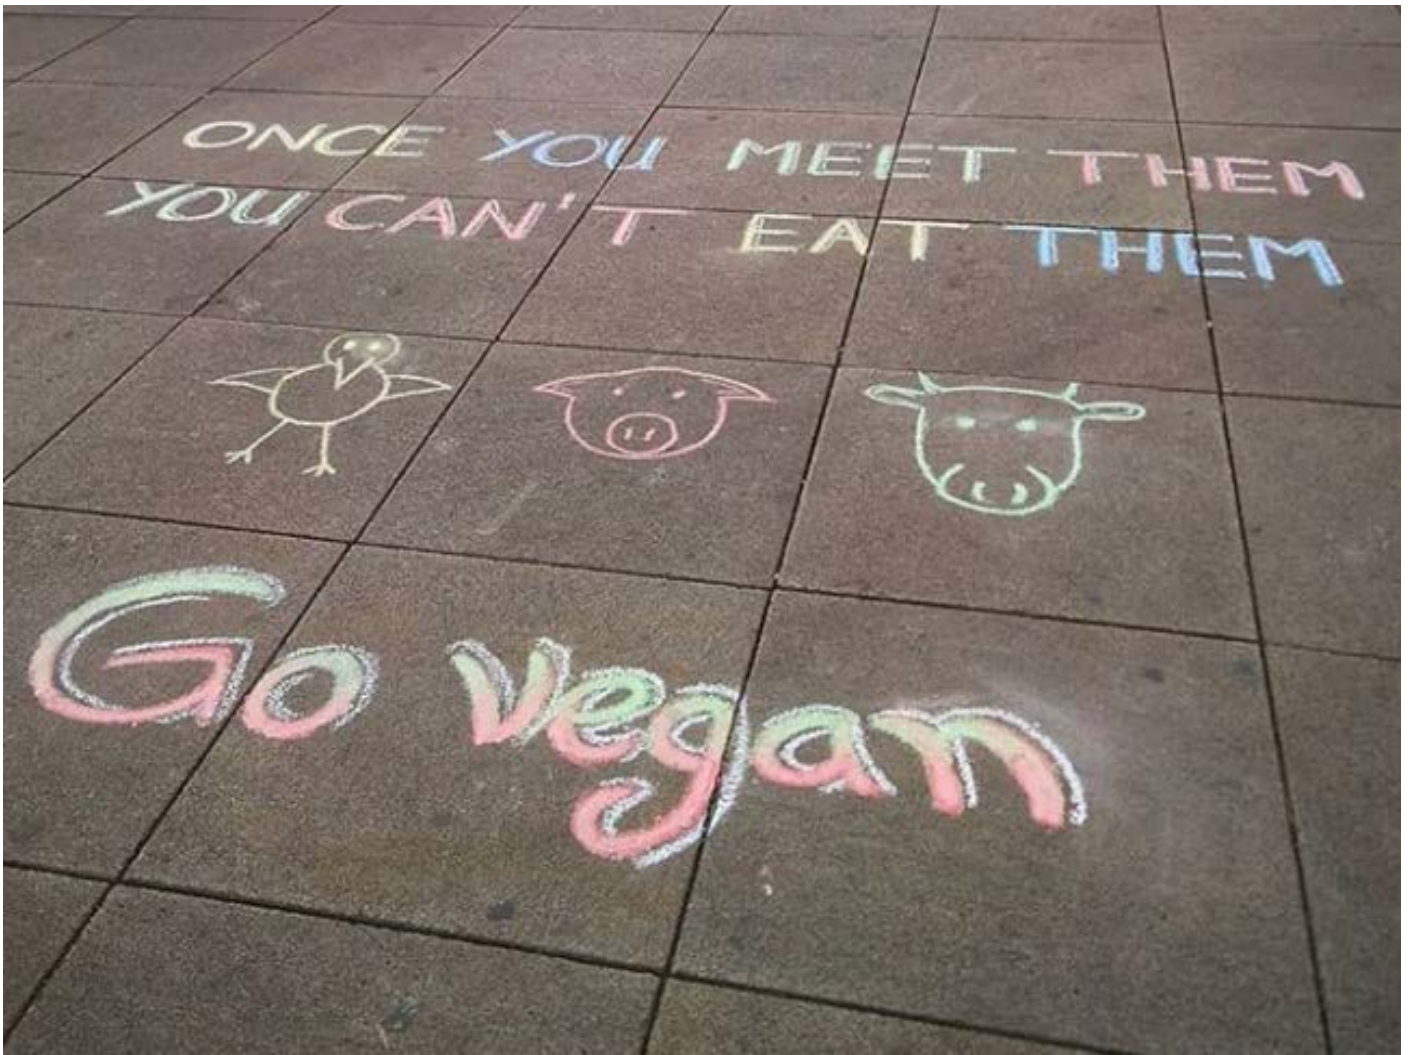 ONCE YOU MEET THEM
YOU CAN'T EAT THEM
Go vegan